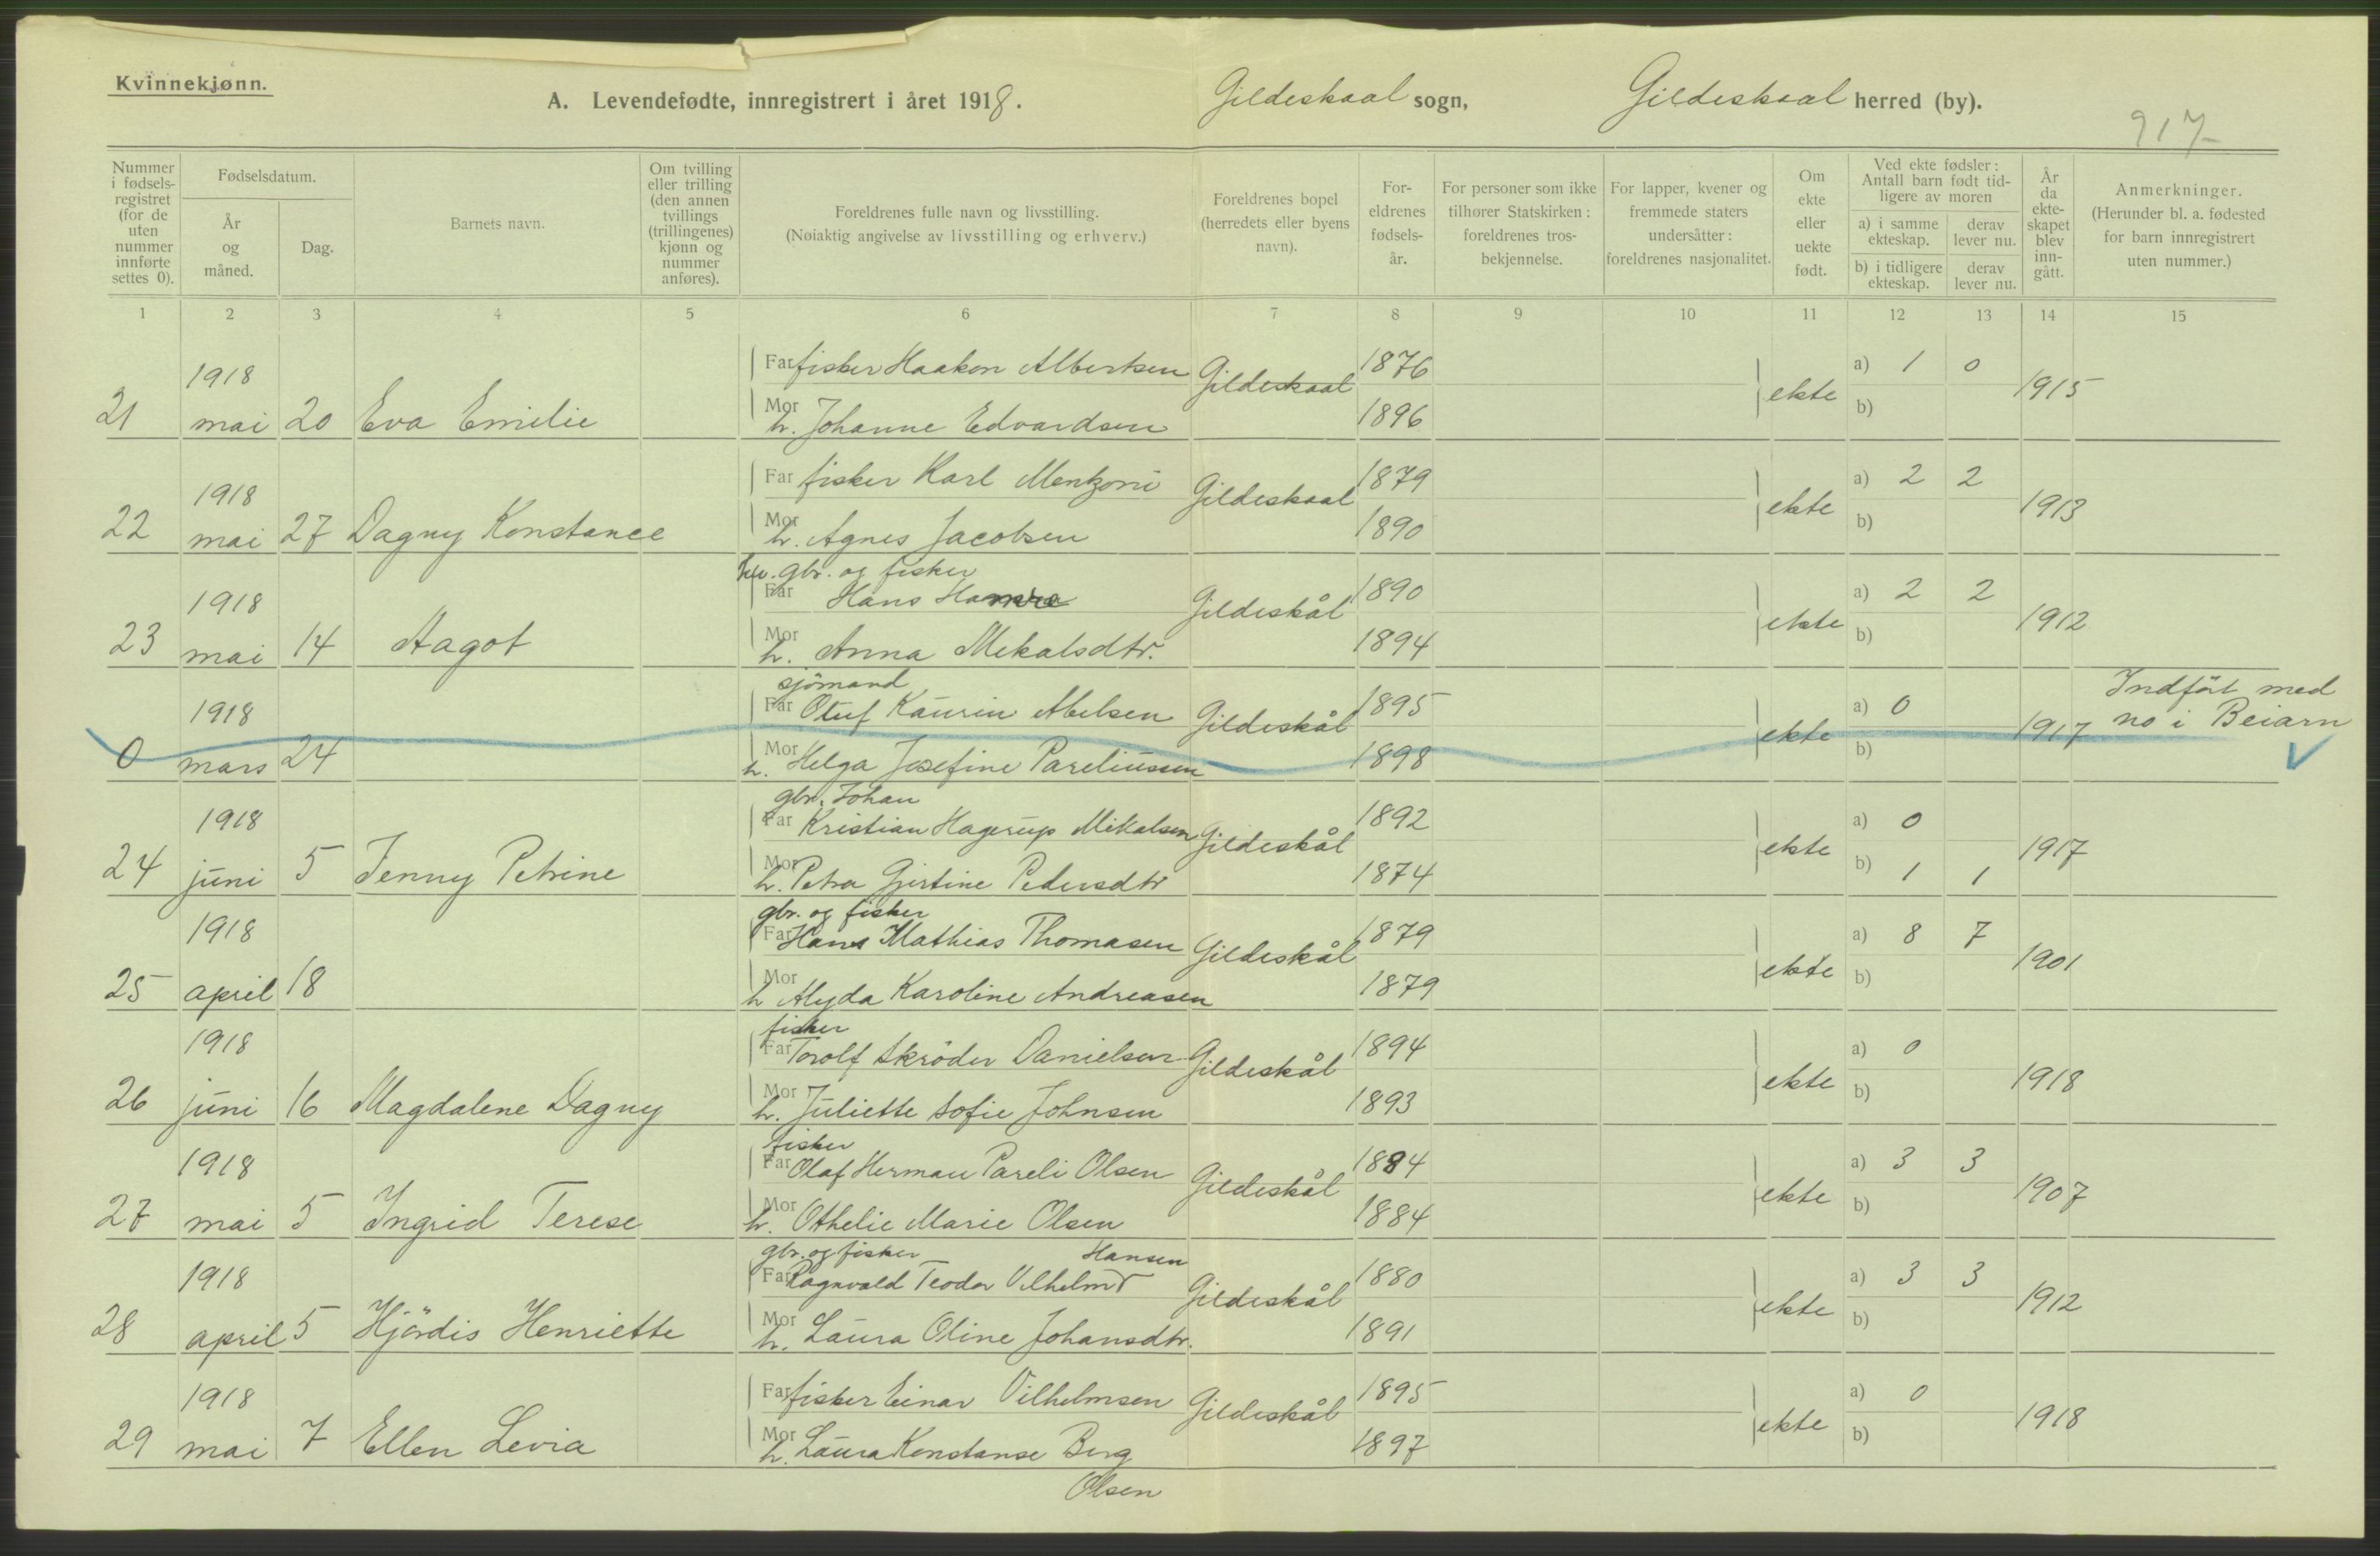 Kvinnekjønn.
A. Levendefødte, innregistrert i året 1918. Gildeskaal sogn, Gildeskaal herred (by).
917
Nummer i fødsels-registret (for de uten nummer innførte settes 0).
Fødselsdatum.
År og måned.
Dag.
Barnets navn.
Om tvilling eller trilling (den annen tvillings (trillingenes) kjønn og nummer anføres).
Foreldrenes fulle navn og livsstilling.
(Nøiaktig angivelse av livsstilling og erhverv.)
Foreldrenes bopel (herredets eller byens navn).
For-eldrenes fødsels-år.
For personer som ikke tilhører Statskirken: foreldrenes tros-bekjennelse.
For lapper, kvener og fremmede staters undersåtter: foreldrenes nasjonalitet.
Om ekte eller uekte født.
Ved ekte fødsler: Antall barn født tid-ligere av moren
a) i samme ekteskap.
derav lever nu.
b) i tidligere ekteskap.
derav lever nu.
År da ekte-skapet blev inn-gått.
Anmerkninger.
(Herunder bl. a. fødested for barn innregistrert uten nummer.)
1 2 3 4 5 6 7 8 9 10 11 12 13 14 15
1918 Far fisker Haakon Albertsen Gildeskaal 1876 ekte a) 1 0 1915
21 mai 20 Eva Emilie Mor h. Johanne Edvardsen 1896 b)
1918 Far fisker Karl Mentzoni Gildeskaal 1879 ekte a) 2 2 1913
22 mai 27 Dagny Konstance Mor h. Agnes Jacobsen 1890 b)
gbr. og fisker
1918 Far Hans Hamre Gildeskål 1890 ekte a) 2 2 1912
23 mai 14 Aagot Mor h. Anna Mekalsdtr. 1894 b)
sjömand
1918 Far Oluf Kaurin Abelsen Gildeskål 1895 ekte a) 0 1917 Indfört med no i Beiarn
0 mars 24 Mor h. Helga Josefine Pareliussen 1898 b)
gbr. Johan
1918 Far Kristian Hagerup Mikalsen Gildeskål 1892 ekte a) 0 1917
24 juni 5 Jenny Petrine Mor h. Petra Gjertine Pedersdtr 1874 b) 1 1
gbr. og fisker
1918 Far Hans Mathias Thomasen Gildeskål 1879 ekte a) 8 7 1901
25 april 18 Mor h Alyda Karoline Andreasen 1879 b)
fisker
1918 Far Torolf Skröder Danielsen Gildeskål 1894 ekte a) 0 1918
26 juni 16 Magdalene Dagny Mor h. Juliette Sofie Johnsen 1893 b)
fisker
1918 Far Olaf Herman Pareli Olsen Gildeskål 1884 ekte a) 3 3 1907
27 mai 5 Ingrid Terese Mor h. Othelie Marie Olsen 1884 b)
gbr. og fisker Hansen
1918 Far Ragnvald Teodor Vilhelm Gildeskål 1880 ekte a) 3 3 1912
28 april 5 Hjördis Henriette Mor h. Laura Oline Johansdtr. 1891 b)
1918 Far fisker Einar Vilhelmsen Gildeskål 1895 ekte a) 0 1918
29 mai 7 Ellen Levia Mor h. Laura Konstanse Berg 1897 b)
Olsen